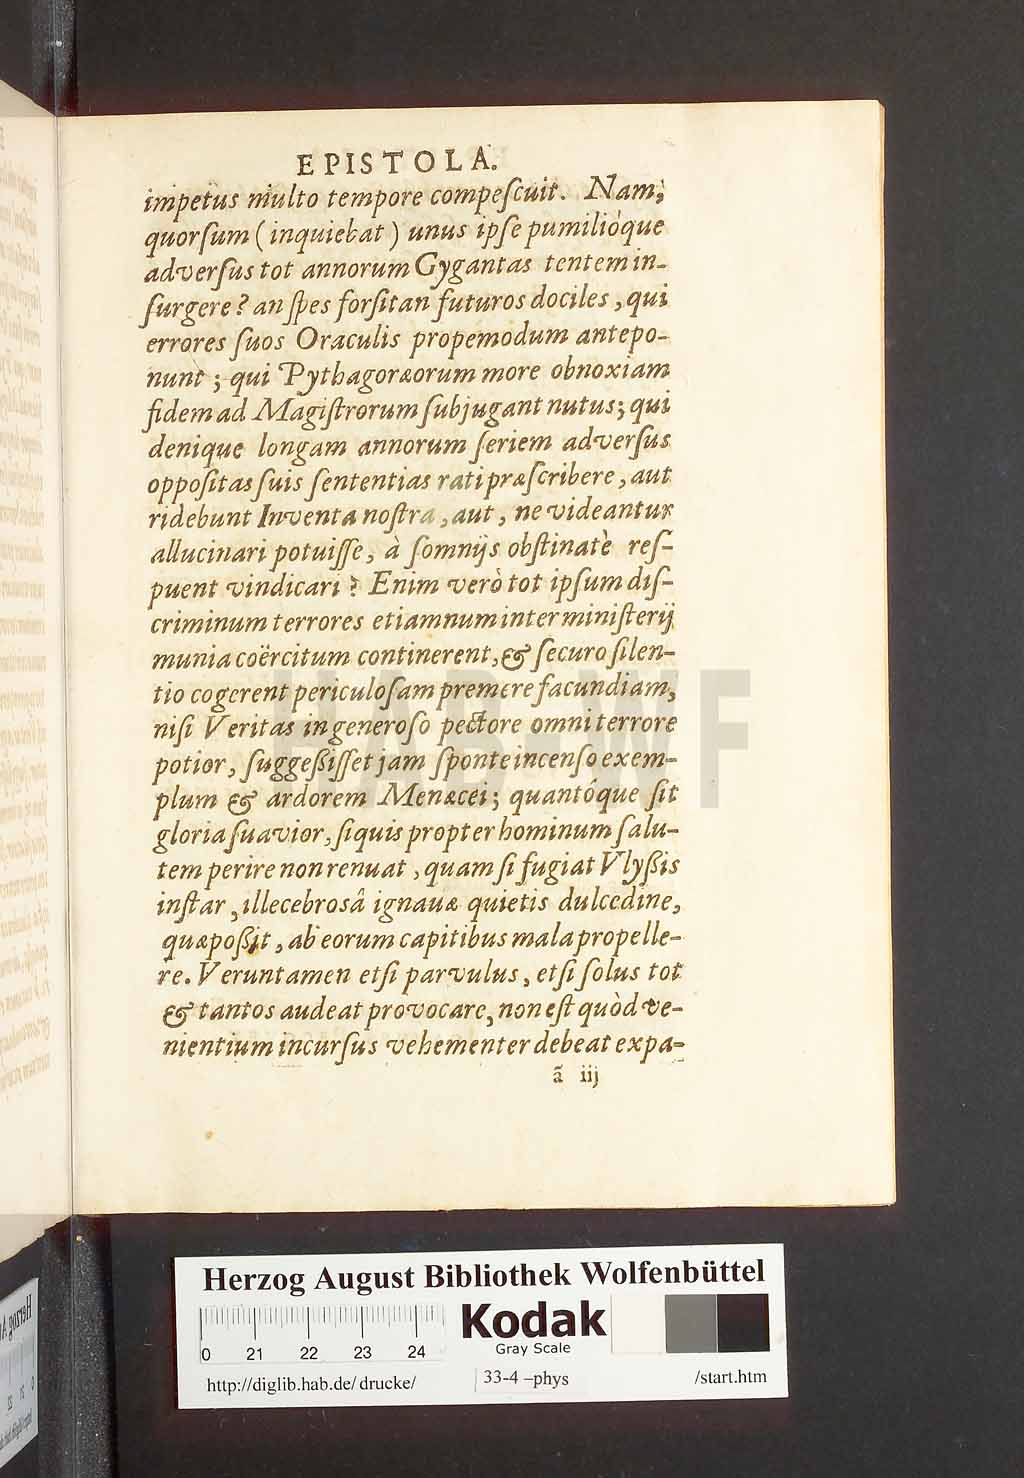 EPISTOLA.
impetus multo tempore compeſcuit. Nam;
quorſum (inquiebat) unus ipſe pumilióque
adverſus tot annorum Gygantas tentem in-
ſurgere? an ſpes forſitan futuros dociles, qui
errores ſuos Oraculis propemodum antepo-
nunt; qui Pythagoræorum more obnoxiam
fidem ad Magiſtrorum ſubjugant nutus; qui
denique longam annorum ſeriem adverſus
oppoſitas ſuis ſententias rati præſcribere, aut
ridebunt Inventa noſtra, aut, ne videantur
allucinari potuiſſe, à ſomnijs obſtinatè reſ-
puent vindicari? Enim verò tot ipſum diſ-
criminum terrores etiamnum inter miniſterij
munia coërcitum continerent, & ſecuro ſilen-
tio cogerent periculoſam premere facundiam,
niſi Veritas in generoſo pectore omni terrore
potior, ſuggeßiſſet jam ſponte incenſo exem-
plum & ardorem Menæcei; quantóque ſit
gloria ſuavior, ſi quis propter hominum ſalu-
tem perire non renuat, quam ſi fugiat Vlyßis
inſtar, illecebrosâ ignauæ quietis dulcedine,
quæ poßit, ab eorum capitibus mala propelle-
re. Veruntamen etſi parvulus, etſi ſolus tot
& tantos audeat provocare, non eſt quòd ve-
nientium incurſus vehementer debeat expa-
ã iij
HAB WF
Herzog August Bibliothek Wolfenbüttel
0 21 22 23 24
Kodak
Gray Scale
http://diglib.hab.de/drucke/ 33-4 –phys /start.htm